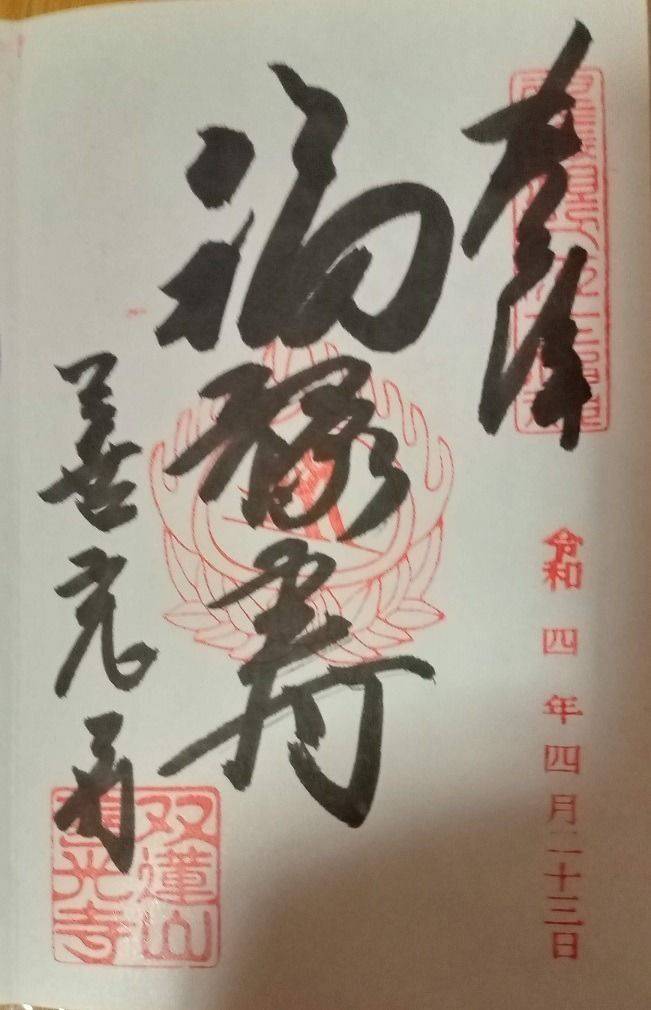 奉拝
令和四年四月二十三日
福禄寿
善光寺
双蓮山
善光寺